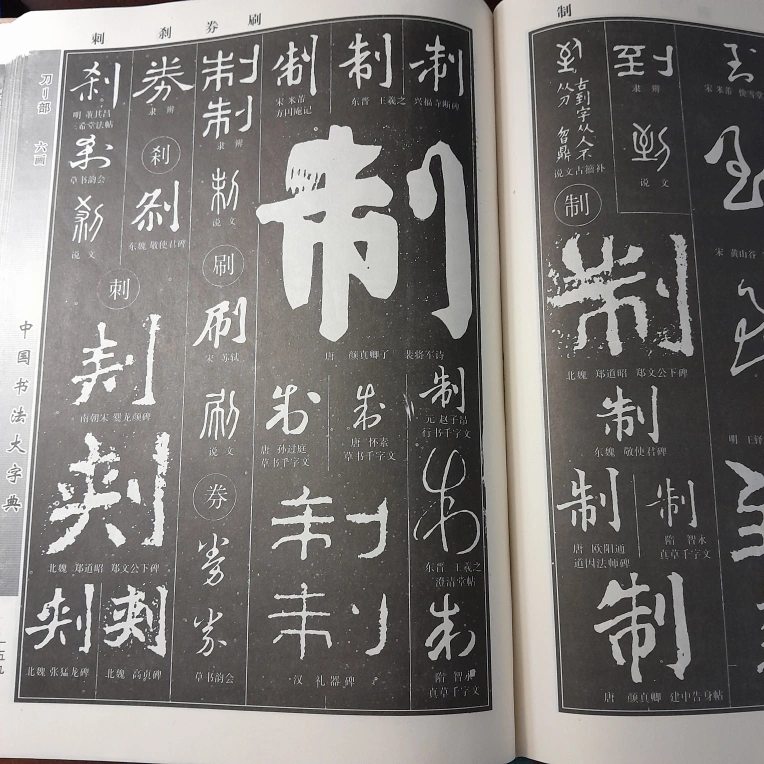 刺 刹 券 刷
制
刀刂部 六画
中国书法大字典
一五九
刹
明 董其昌
三希堂法帖
草书韵会
说 文
刺
南朝宋 爨龙颜碑
北魏 郑道昭 郑文公下碑
北魏 张猛龙碑
北魏 高贞碑
券
隶 辨
刹
东魏 敬使君碑
制
制
隶 辨
说 文
刷
刷
宋 苏轼
说 文
券
草书韵会
制
宋 米芾
方圆庵记
制
东晋 王羲之
制
兴福寺断碑
制
唐 颜真卿 裴将军诗
唐 孙过庭
草书千字文
唐 怀素
草书千字文
制
元 赵子昂
行书千字文
东晋 王羲之
澄清堂帖
汉 礼器碑
隋 智永
真草千字文
古到字从人不
从刀 曶鼎
说文古籀补
隶 辨
说 文
制
制
北魏 郑道昭 郑文公下碑
制
东魏 敬使君碑
制
唐 欧阳通
道因法师碑
制
隋 智永
真草千字文
制
唐 颜真卿 建中告身帖
宋 黄山谷